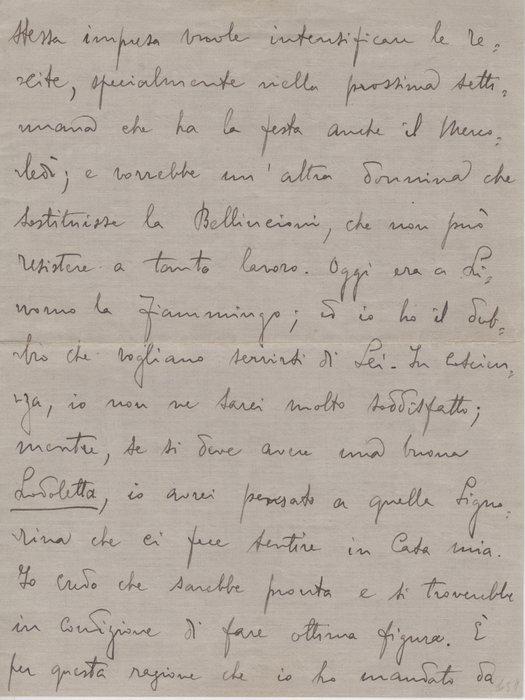 stessa impresa vuole intensificare le re-
cite, specialmente nella prossima setti-
mana che ha la festa anche il Merco-
ledì; e vorrebbe un'altra donnina che
sostituisse la Bellincioni, che non può
resistere a tanto lavoro. Oggi era a Li-
vorno la Fiammingo; ed io ho il dub-
bio che vogliano servirsi di Lei. In coscien-
za, io non ne sarei molto soddisfatto;
mentre, se si deve avere una buona
Lodoletta, io avrei pensato a quella Signo-
rina che ci fece sentire in Casa mia.
Io credo che sarebbe pronta e si troverebbe
in condizione di fare ottima figura. È
per questa ragione che io ho mandato da